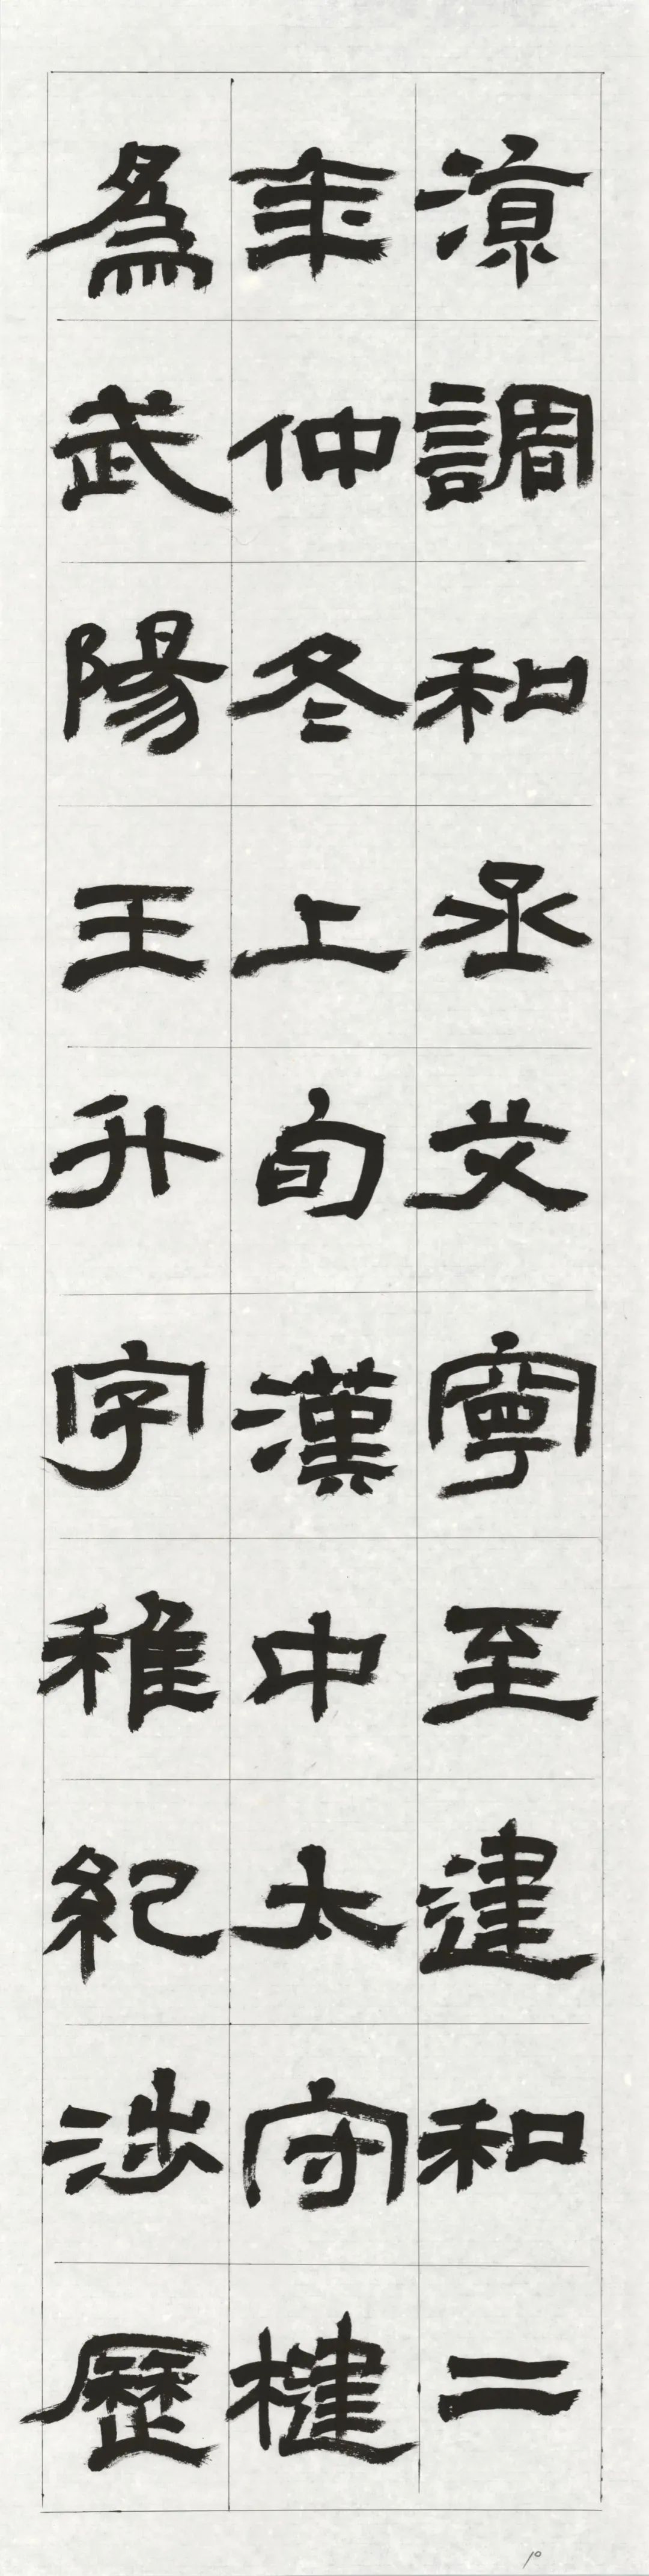 涼調和烝艾寧至建和二
年仲冬上旬漢中太守楗
為武陽王升字稚紀涉歷
10